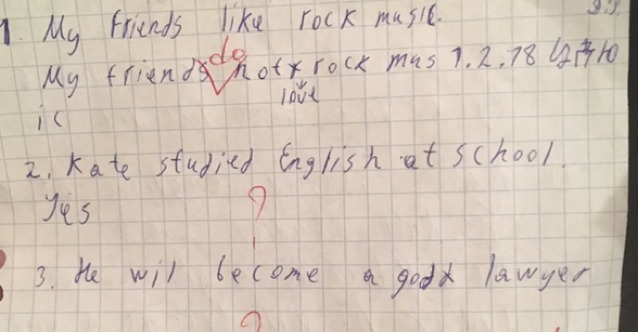 1. My friends like rock music.
do
My friends not rock mus 1.2.78
love
ic
2. Kate studied English at school.
Yes
?
3. He wil become a godd lawyer
?